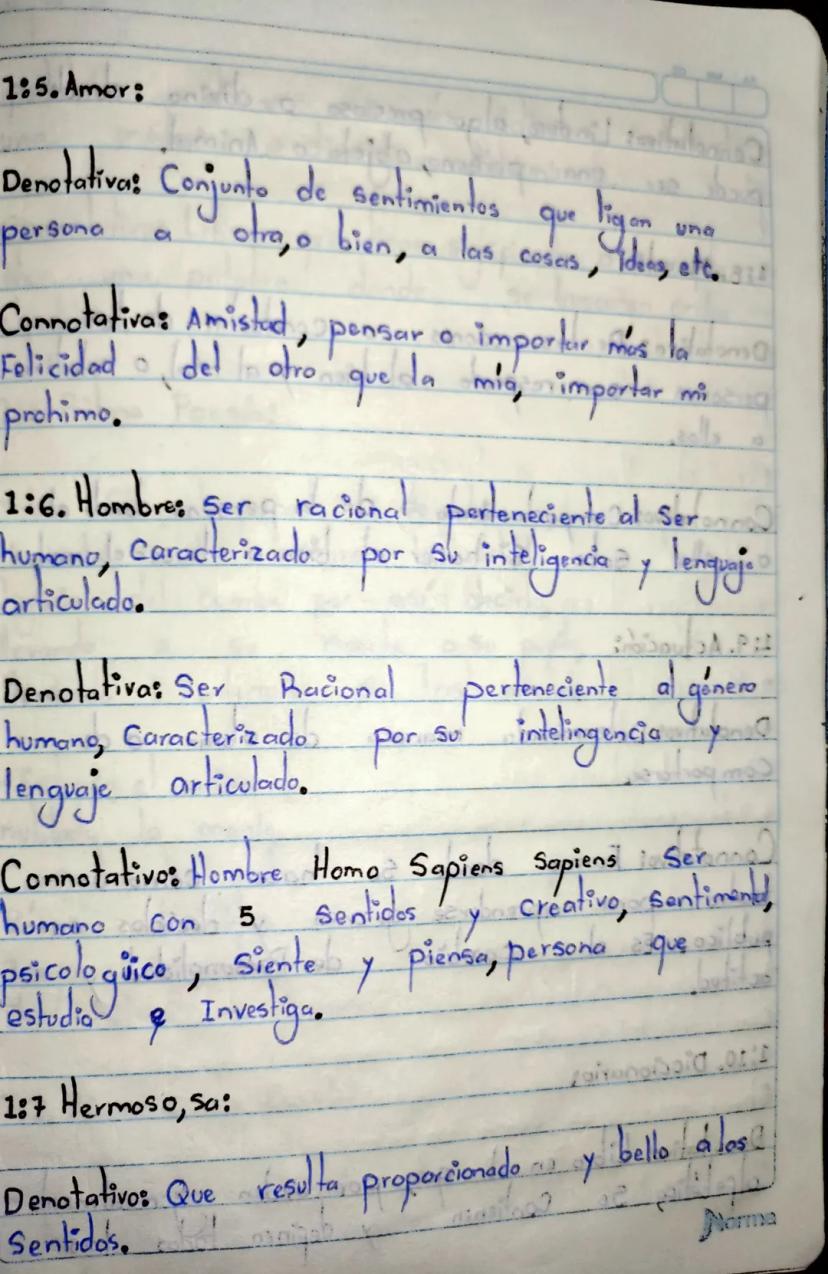 1:5. Amor:
Denotativa: Conjunto de sentimientos que ligan una
persona a otra, o bien, a las cosas, ideas, etc.
Connotativa: Amistad, pensar o importar más la
Felicidad del otro que la mía, importar mi
prohimo.
1:6. Hombre: Ser racional perteneciente al Ser
humano, Caracterizado por su inteligencia y lenguaje
articulado.
Denotativa: Ser Racional perteneciente al género
humano, Caracterizado por su intelingencia y
lenguaje articulado.
Connotativo: Hombre Homo Sapiens Sapiens Ser
humano con 5 sentidos y creativo, sentimental,
psicologüico, Siente y piensa, persona que
estudia e Investiga.
1:7 Hermoso, sa:
Denotativo: Que resulta proporcionado y bello á los
Sentidos.
Norma